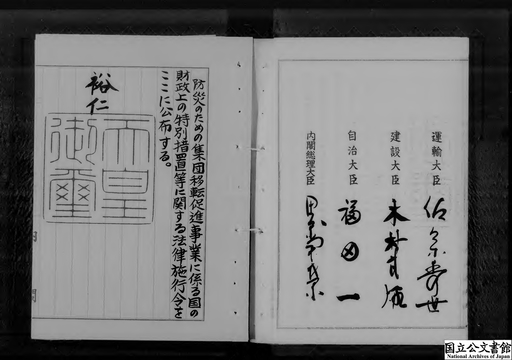 運輸大臣 佐々木秀世
建設大臣 木村武雄
自治大臣 福田一
内閣総理大臣 田中角榮
防災のための集団移転促進事業に係る国の
財政上の特別措置等に関する法律施行令を
ここに公布する。
裕仁
天皇
御璽
内閣
国立公文書館
National Archives of Japan